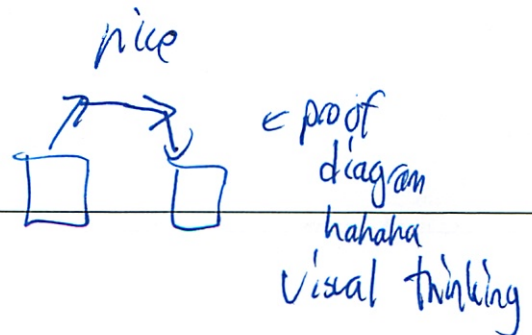 nice
← proof
diagram
hahaha
visual thinking